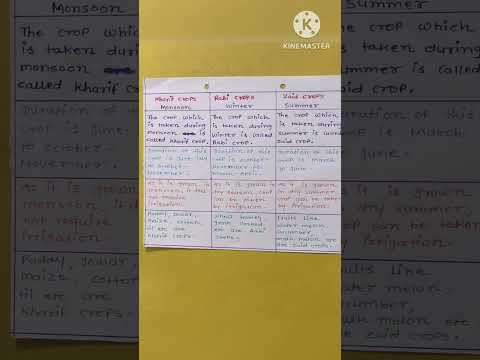 Monsoon
The crop which
is taken during
monsoon is
called Kharif crop.
Duration of this
crop is June-
to October-
November.
As it is grown
monsoon, it
not require
irrigation
Paddy, Jowar,
maize, cotton
til etc are
Kharif crops.
K
KINEMASTER
Kharif Crops
Monsoon
The crop which
is taken during
monsoon is
called Kharif crop.
Duration of this
crop is June-July
to October-
November.
As it is grown in
monsoon, it does
not require
irrigation.
Paddy, Jowar,
maize, cotton,
til etc are
Kharif crops.
Rabi Crops
Winter
The crop which
is taken during
winter is called
Rabi crop.
Duration of this
crop is October-
November to
March-April.
As it is grown in
dry season, crop
can be taken
by irrigation.
Wheat, barley,
gram
etc are Rabi
crops.
Zaid Crops
Summer
The crop which
is taken during
summer is called
Zaid crop.
Duration of this
crop is March
to June.
As it is grown
in dry summer,
crop can be taken
by irrigation.
Fruits like
water melon
cucumber,
musk melon are
are zaid crops.
Summer
crop which
taken during
summer is called
crop.
ration of this
is March
June.
it is grown
dry summer,
can be taken
irrigation.
uits like
water melon
cumber,
usk melon are
zaid crops.